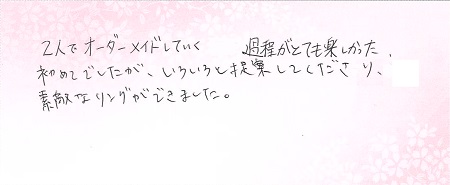 2人でオーダーメイドしていく 過程がとても楽しかった
初めてでしたが、いろいろと提案してくださり、
素敵なリングができました。